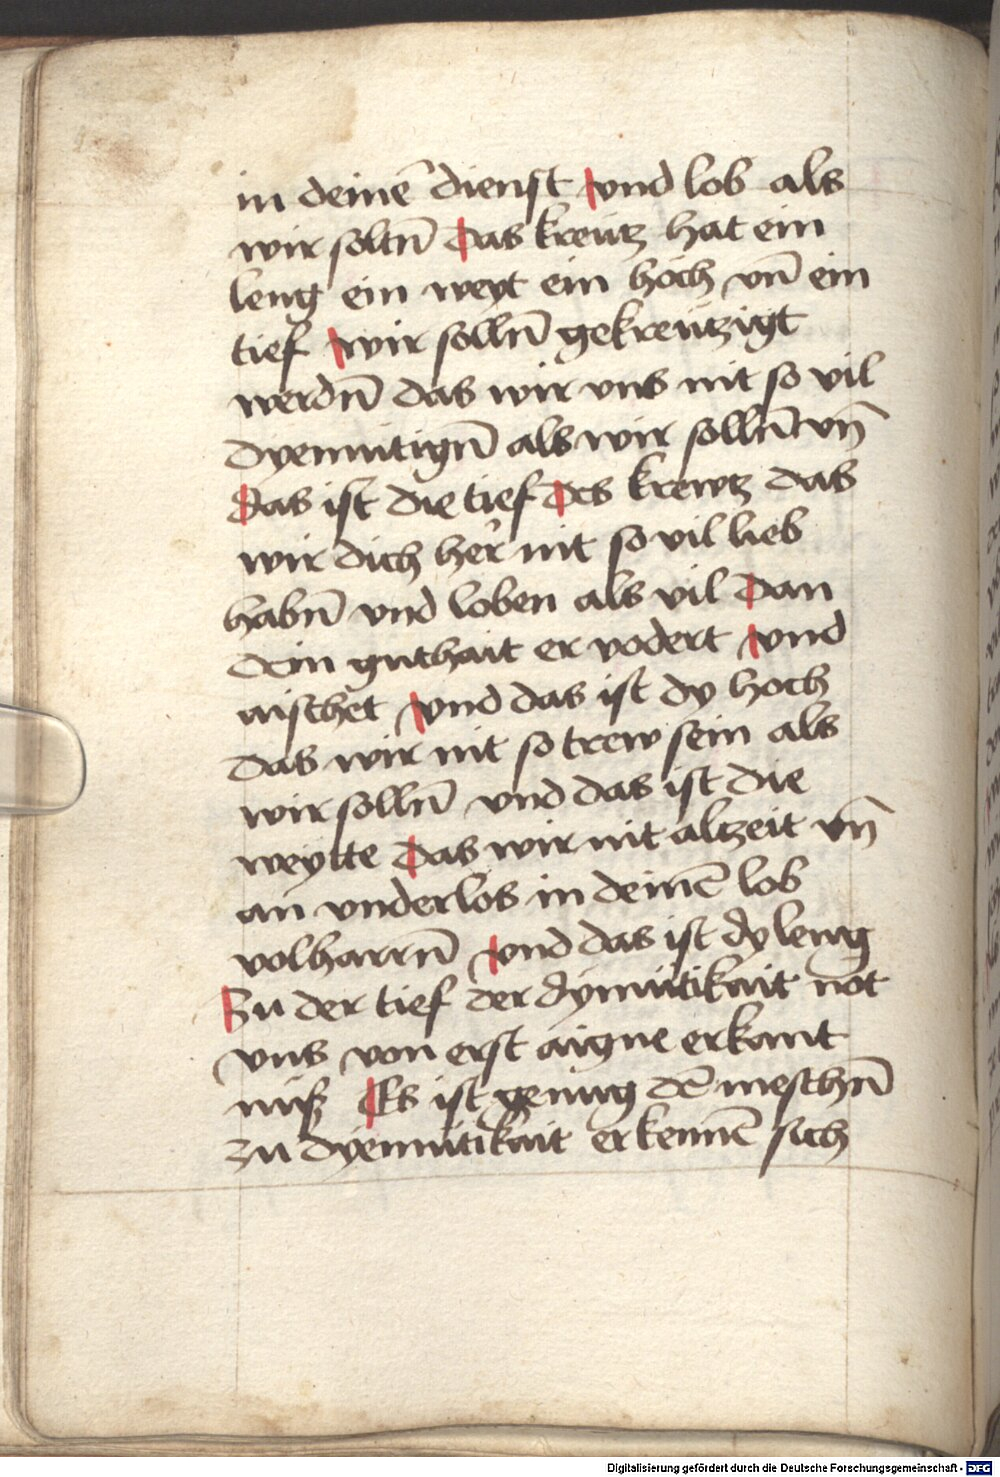 in deinē dienst vnd lob als
wir soltn̄ das kreutz hat ein
leng ein weyt ein hoch vn̄ ein
tief wir solln̄ gekreutzigt
werdn̄ das wir vns nit so vil
dyemutign̄ als wir solln̄ vn̄
das ist die tief des krewtz das
wir dich her nit so vil lieb
habn̄ vnd loben als vil dan
dein guthait er vodert vnd
aischet vnd das ist dy hoch
das wir nit so trew sein als
wir solln̄ vnd das ist die
weytte das wir nit altzeit vn̄
an vnderlos in deinē lob
volharrn̄ vnd das ist dy leng
Zu der tief der dymutikait not
vns von erst aigne erkant
nuß Es ist genug dē meschn̄
zu dyemutikait erkennē sich
Digitalisierung gefördert durch die Deutsche Forschungsgemeinschaft - DFG